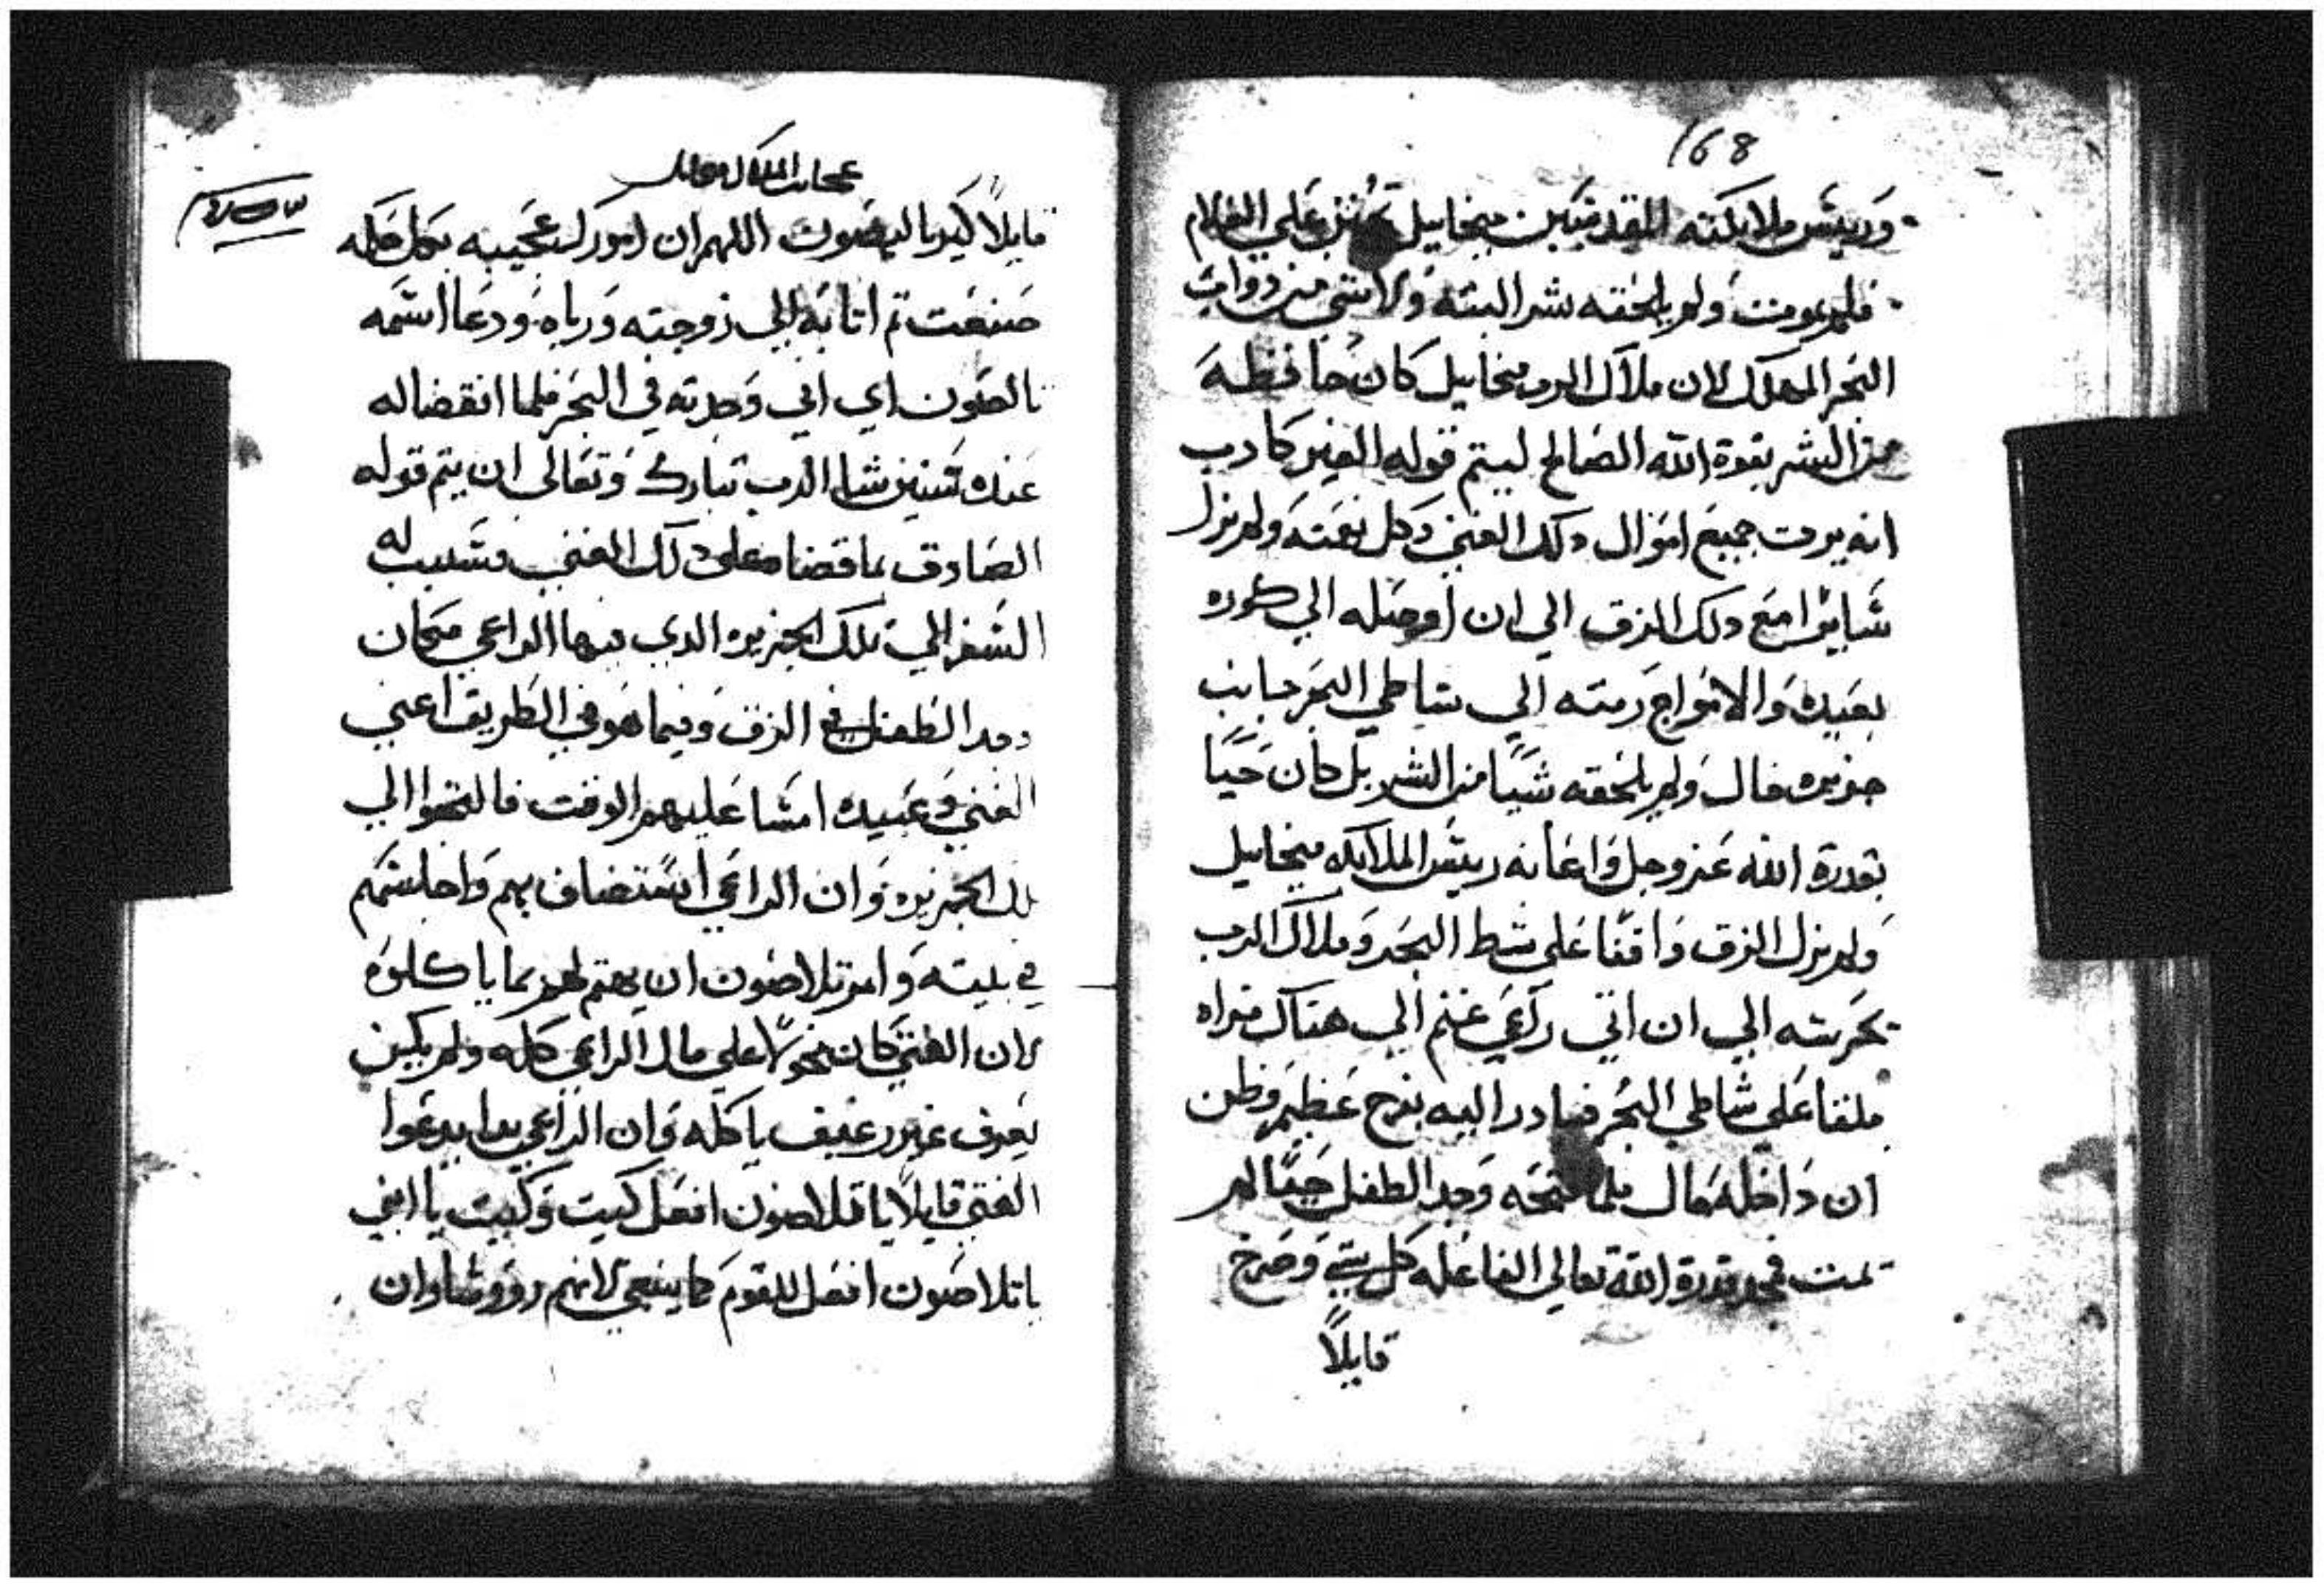 168
وريس ملايكته المقدسين ميخاييل تحنن علي الغلام
فلم يموت ولم يلحقه شر البته ولا شي من دواب
البحر المهلك لان ملاك الرب ميخاييل كان حافظه
من الشر بقوة الله الصالح ليتم قوله الغير كادب
انه يرت جميع اموال دلك الغني وكل نعمته ولم يزل
سايرا مع دلك الزق الي ان اوصله الي كوره
بعيده والامواج رمته الي شاطي البحر جانب
جزيره قال ولم يلحقه شيا من الشر بل كان حيا
بقدرة الله عز وجل واعانه ريس الملايكه ميخاييل
ولم يزل الزق واقفا علي شط البحر وملاك الرب
يحرسه الي ان اتي راعي غنم الي هناك فراه
ملقا علي شاطي البحر فبادر اليه بفرح عظيم وظن
ان داخله مال فلما فتحه وجد الطفل حيا لم
يمت فمجد قدرة الله تعالي الفاعله كل شي وصرخ
قايلا
عجايب الملاك ميخاييل
قايلا كيرياليصون اللهم ان امورك عجيبه بكل حكمه
صنعت تم اتا به الي زوجته ورباه ودعا اسمه
تالصون اي اني وجدته في البحر فلما انقضا له
عنده سنين شا الرب تبارك وتعالي ان يتم قوله
الصادق بما قضاه علي دلك الغني فسبب له
السفر الي تلك الجزيره الدي فيها الراعي مكان
وجد الطفل في الزق وفيما هو في الطريق اعني
الغني وعبيده امسا عليهم الوقت فالتجوا الي
تلك الجزيره وان الراعي استضاف بهم واجلسهم
في بيته وامر تلاصون ان يهتم لهم بما ياكلوه
لان الفتي كان متحولا علي مال الراعي كله ولم يكن
يعرف غير رغيف ياكله وان الراعي بدا يدعوا
الفتي قايلا يا تلاصون افعل كيت وكيت يا ابني
يا تلاصون افعل للقوم كما ينبغي لانهم رووسا وان